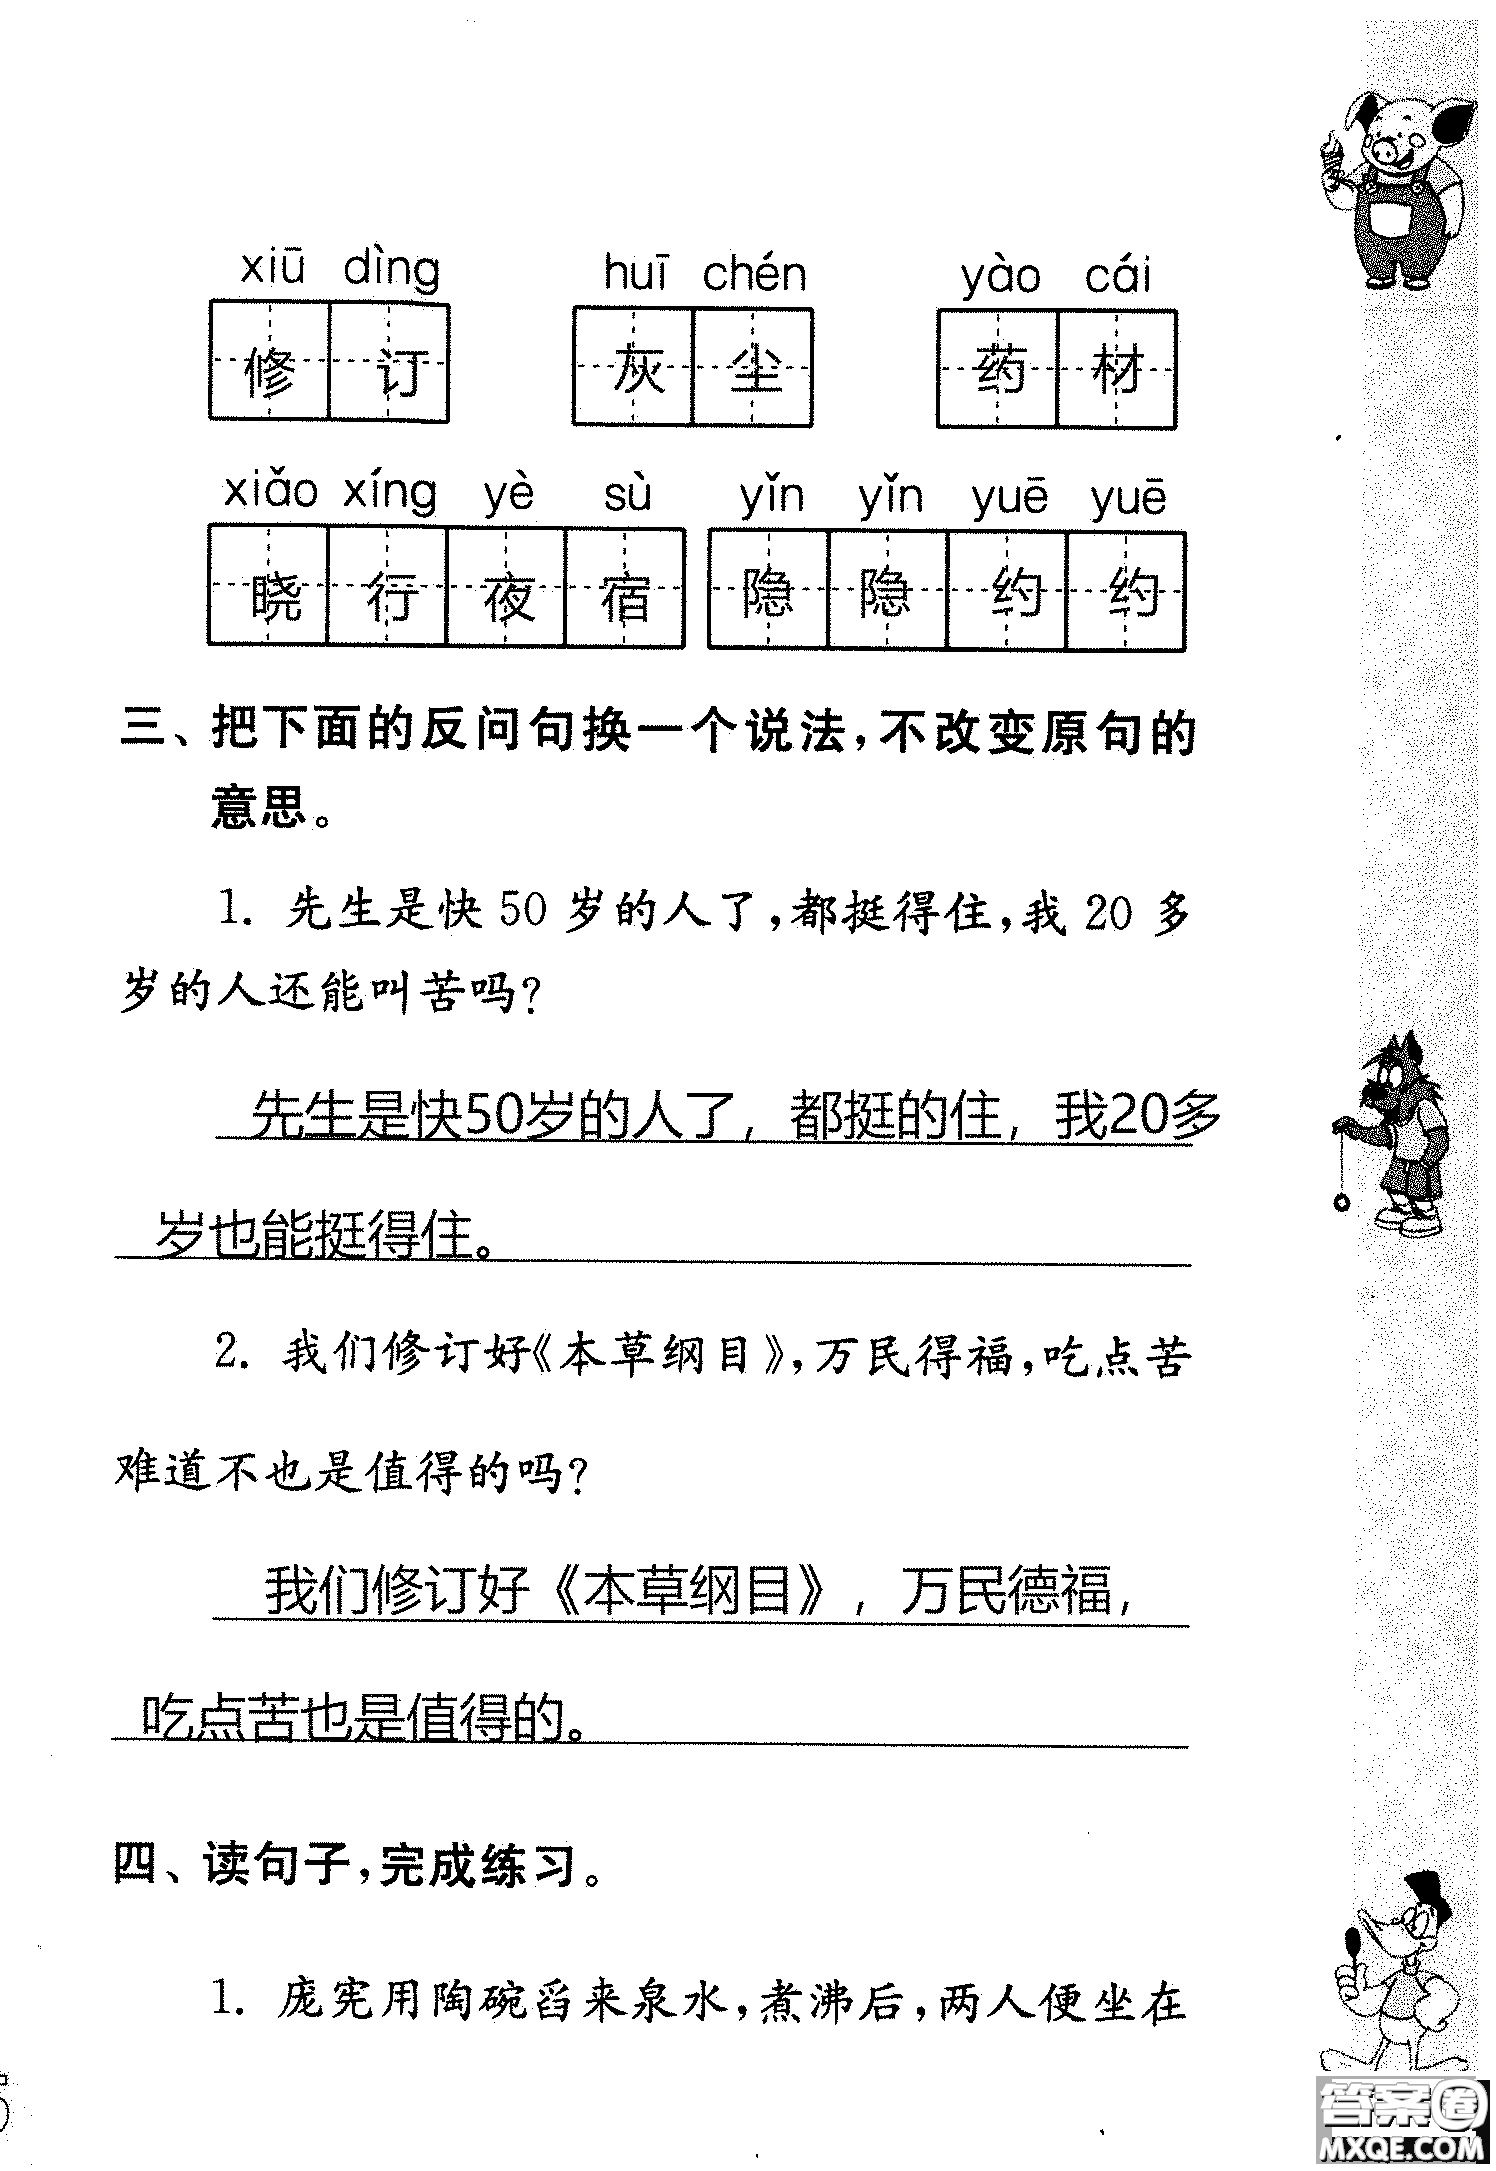 xiū dìng huī chén yào cái
修 订 灰 尘 药 材
xiǎo xíng yè sù yǐn yǐn yuē yuē
晓 行 夜 宿 隐 隐 约 约
三、把下面的反问句换一个说法,不改变原句的
意思。
1. 先生是快 50 岁的人了,都挺得住,我 20 多
岁的人还能叫苦吗?
先生是快50岁的人了，都挺的住，我20多
岁也能挺得住。
2. 我们修订好《本草纲目》,万民得福,吃点苦
难道不也是值得的吗?
我们修订好《本草纲目》，万民德福，
吃点苦也是值得的。
四、读句子,完成练习。
1. 庞宪用陶碗舀来泉水,煮沸后,两人便坐在
答案圈
MXQE.COM